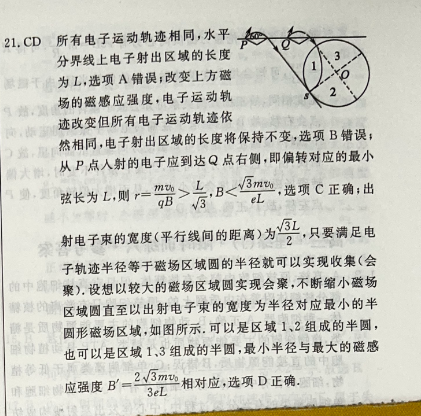 21. CD 所有电子运动轨迹相同,水平
分界线上电子射出区域的长度
为 L,选项 A 错误;改变上方磁
场的磁感应强度,电子运动轨
迹改变但所有电子运动轨迹依
P
Q
1
3
O
2
s
然相同,电子射出区域的长度将保持不变,选项 B 错误;
从 P 点人射的电子应到达 Q 点右侧,即偏转对应的最小
弦长为 L,则 r=\frac{mv₀}{qB}>\frac{L}{\sqrt{3}},B<\frac{\sqrt{3}mv₀}{eL},选项 C 正确;出
射电子束的宽度(平行线间的距离)为\frac{\sqrt{3}L}{2},只要满足电
子轨迹半径等于磁场区域圆的半径就可以实现收集(会
聚).设想以较大的磁场区域圆实现会聚,不断缩小磁场
区域圆直至以出射电子束的宽度为半径对应最小的半
圆形磁场区域,如图所示.可以是区域 1、2 组成的半圆,
也可以是区域 1、3 组成的半圆,最小半径与最大的磁感
应强度 B′=\frac{2\sqrt{3}mv₀}{3eL}相对应,选项 D 正确.